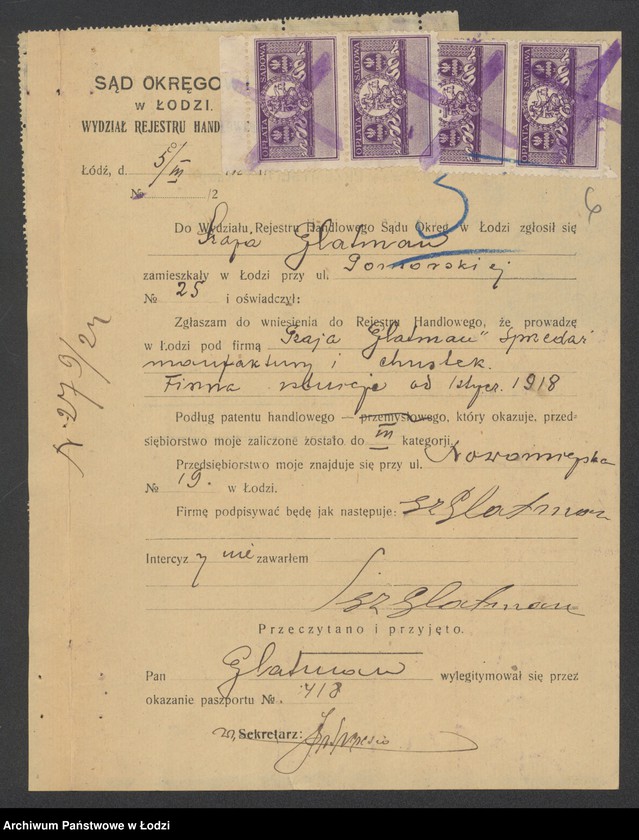 SĄD OKRĘGO
w ŁODZI.
WYDZIAŁ REJESTRU HANDLOWE
OPŁATA SĄDOWA
OPŁATA SĄDOWA
OPŁATA SĄDOWA
OPŁATA SĄDOWA
Łódź, d. 5/III
№ /2
6
Do Wydziału Rejestru Handlowego Sądu Okręg. w Łodzi zgłosił się
Szaja Glatman
zamieszkały w Łodzi przy ul. Pomorskiej
№ 25 i oświadczył:
Zgłaszam do wniesienia do Rejestru Handlowego, że prowadzę
w Łodzi pod firmą "Szaja Glatman" sprzedaż
manufaktury i chustek.
Firma istnieje od 1 stycz. 1918
Podług patentu handlowego — przemysłowego, który okazuję, przed-
siębiorstwo moje zaliczone zostało do III kategorji.
Przedsiębiorstwo moje znajduje się przy ul. Nowomiejska
№ 19. w Łodzi.
Firmę podpisywać będę jak następuje: Sz Glatman
Intercyzy nie zawarłem
Sz Glatman
Przeczytano i przyjęto.
Pan Glatman wylegitymował się przez
okazanie paszportu №. 718
w. Sekretarz:
Archiwum Państwowe w Łodzi